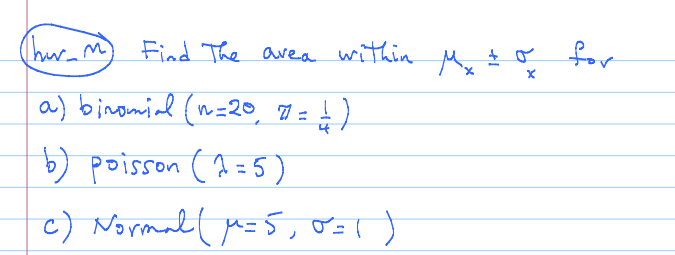 hw_m Find The area within μₓ ± σₓ for
a) binomial (n=20, π = 1/4)
b) poisson (λ=5)
c) Normal( μ=5, σ=1 )